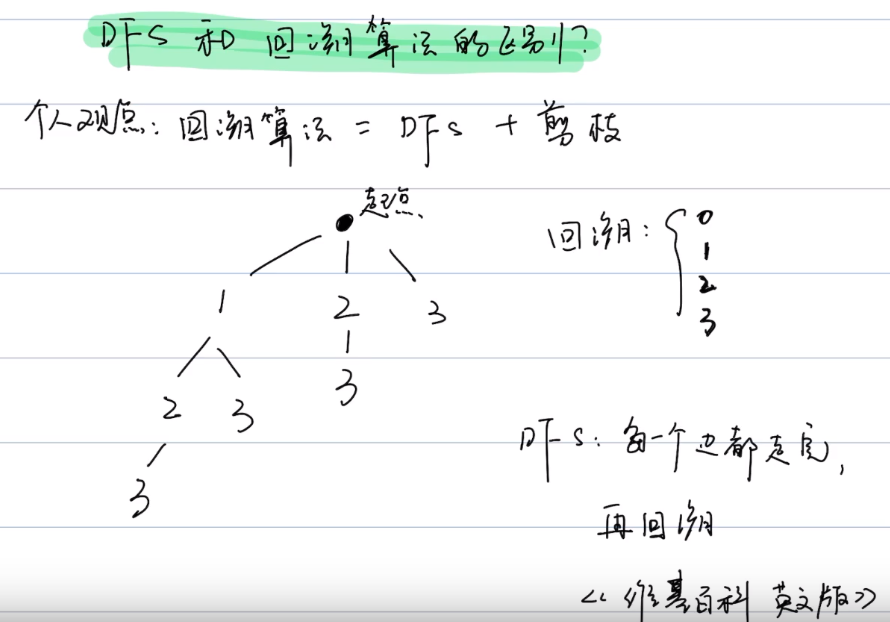 DFS 和 回溯算法的区别?
个人观点: 回溯算法 = DFS + 剪枝
起点
回溯: { 0
1
2
3
1 2 3
2 3 3
3
DFS: 每一个边都走完,
再回溯
<< 维基百科 英文版>>